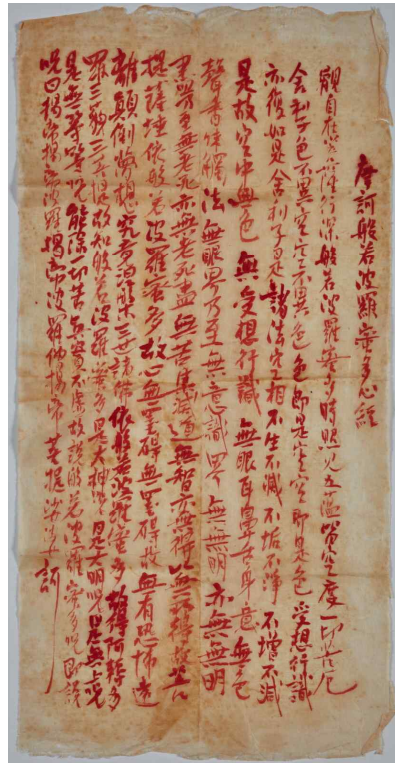 摩訶般若波羅蜜多心經
觀自在菩薩行深般若波羅蜜多時照見五蘊皆空度一切苦厄
舍利子色不異空空不異色色即是空空即是色受想行識
亦復如是舍利子是諸法空相不生不滅不垢不淨不增不減
是故空中無色無受想行識無眼耳鼻舌身意無色
聲香味觸法無眼界乃至無意識界無無明亦無無明
盡乃至無老死亦無老死盡無苦集滅道無智亦無得以無所得故菩
提薩埵依般若波羅蜜多故心無罣礙無罣礙故無有恐怖遠
離顛倒夢想究竟涅槃三世諸佛依般若波羅蜜多故得阿耨多
羅三藐三菩提故知般若波羅蜜多是大神呪是大明呪是無上呪
是無等等呪能除一切苦真實不虛故說般若波羅蜜多呪即說
呪曰揭諦揭諦波羅揭諦波羅僧揭帝菩提娑婆訶